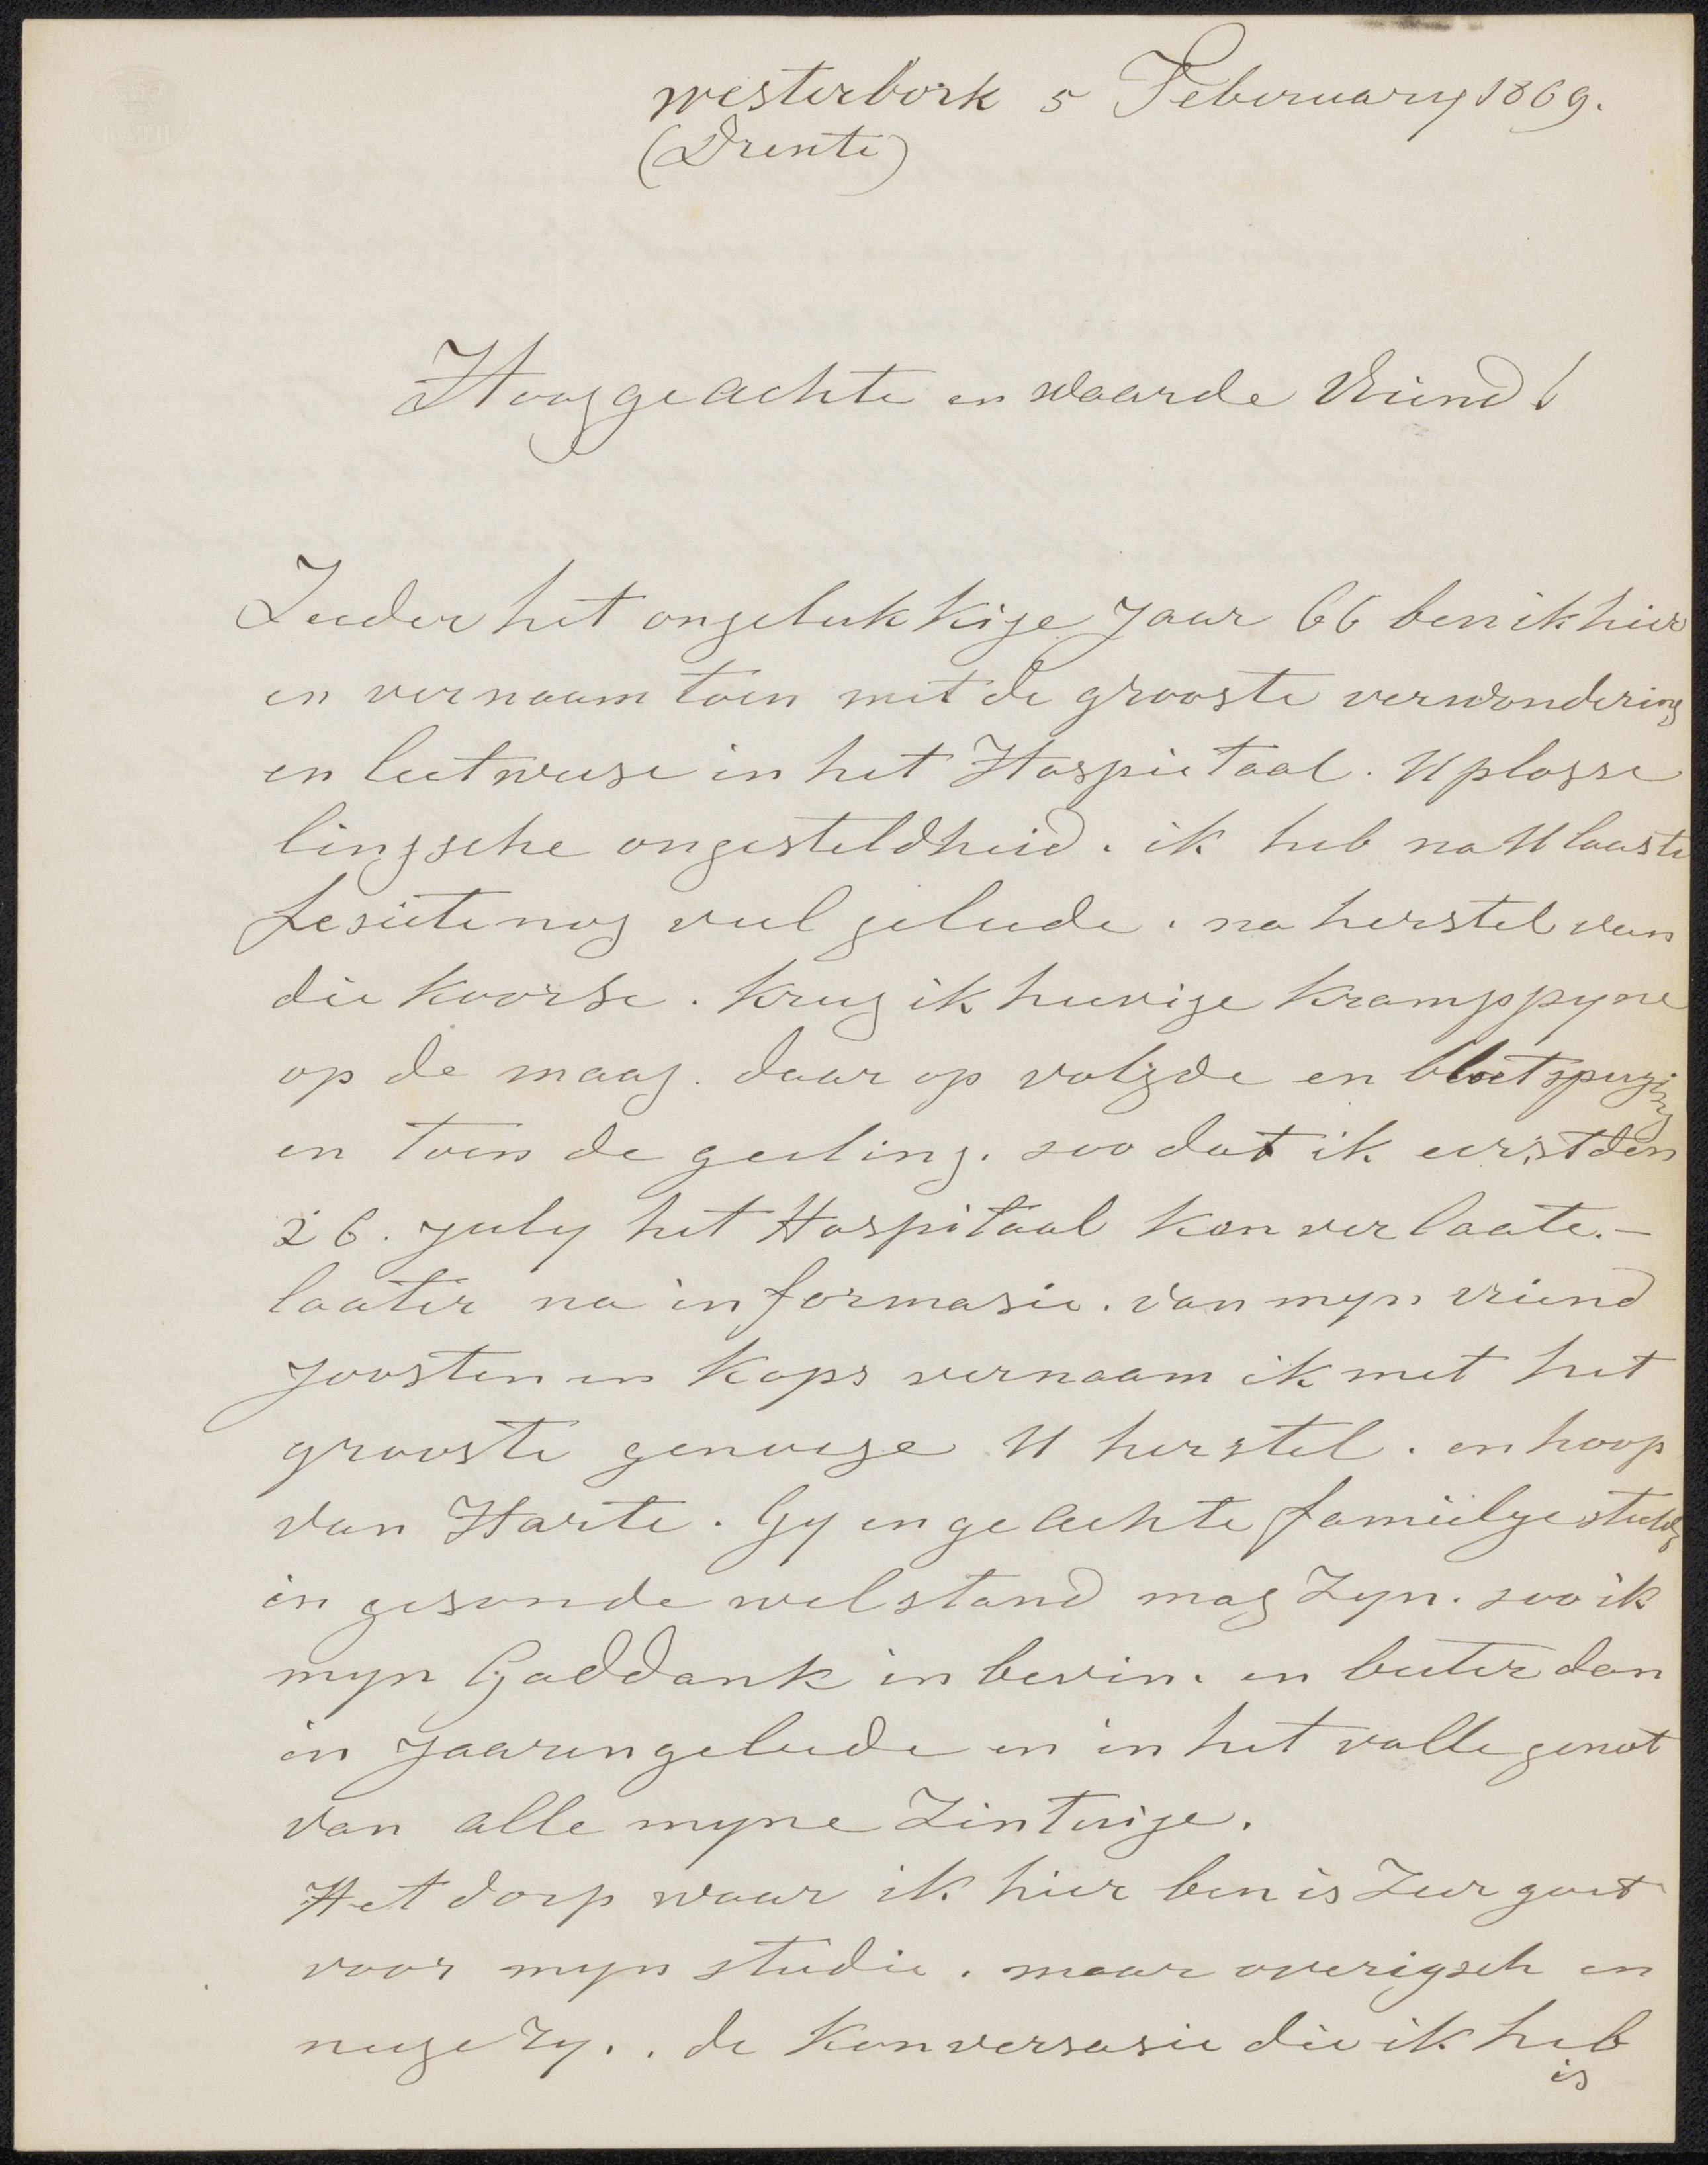 westerbork 5 February 1869.
(Drente)
Hooggeachte en waarde Vriend!
Zeeder het ongelukkige Jaar 66 ben ik hier
en vernaam toen met de grooste verwondering
en leetweese in het Hospietaal. U plosse
lingsche ongesteldheid. ik heb na U laaste
Zesiete nog veel geleede. na herstel van
die koorse. kreeg ik heevige kramppyne
op de maag. daar op volgde en bloetspuging
en toen de geeling. soo dat ik eerst den
26. july het Hospitaal kon verlaate. -
laater na informasie. van myn vriend
Joosten en Kops vernaam ik met het
grooste genoege U herstel. en hoop
van Harte. Gy en geachte famielye steeds
in gesonde welstand mag Zyn. soo ik
myn Goddank in bevin. en beeter dan
in Jaaren geleede en in het volle genot
van alle myne Zintuige.
Het dorp waar ik hier ben is Zeer goet
voor myn studie. maar overigsch en
neegery.. de Konversasie die ik heb
is